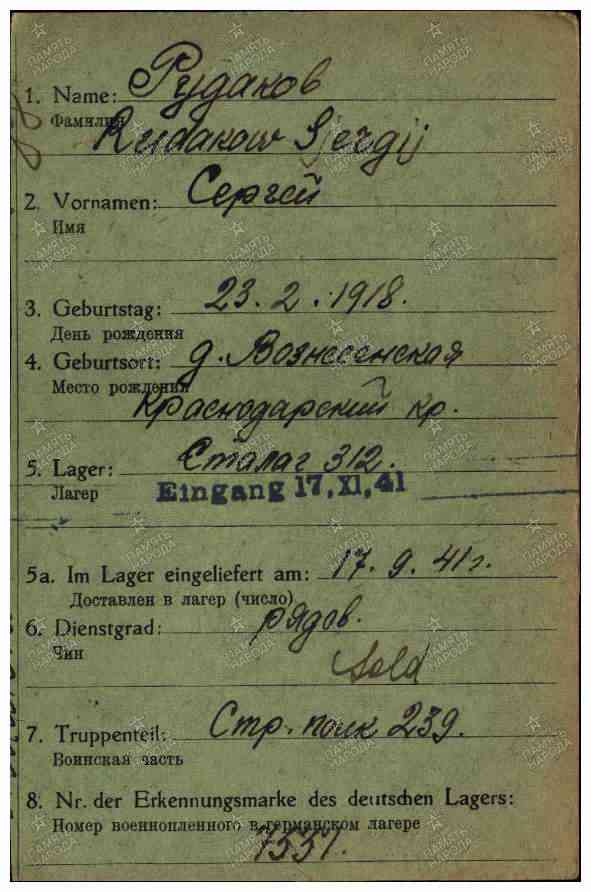 1. Name: Рудаков
Фамилия
Rudakow Sjergij
2. Vornamen: Сергей
Имя
3. Geburtstag: 23. 2. 1918.
День рождения
4. Geburtsort: д. Вознесенская
Место рождения
Краснодарский кр.
5. Lager: Сталаг 312.
Лагер
Eingang 17. XI. 41
5a. Im Lager eingeliefert am: 17. 9. 41 г.
Доставлен в лагер (число)
6. Dienstgrad: рядов.
Чин
Sold
7. Truppenteil: Стр. полк 239.
Воинская часть
8. Nr. der Erkennungsmarke des deutschen Lagers:
Номер военнопленного в германском лагере
7551.
ПАМЯТЬ НАРОДА